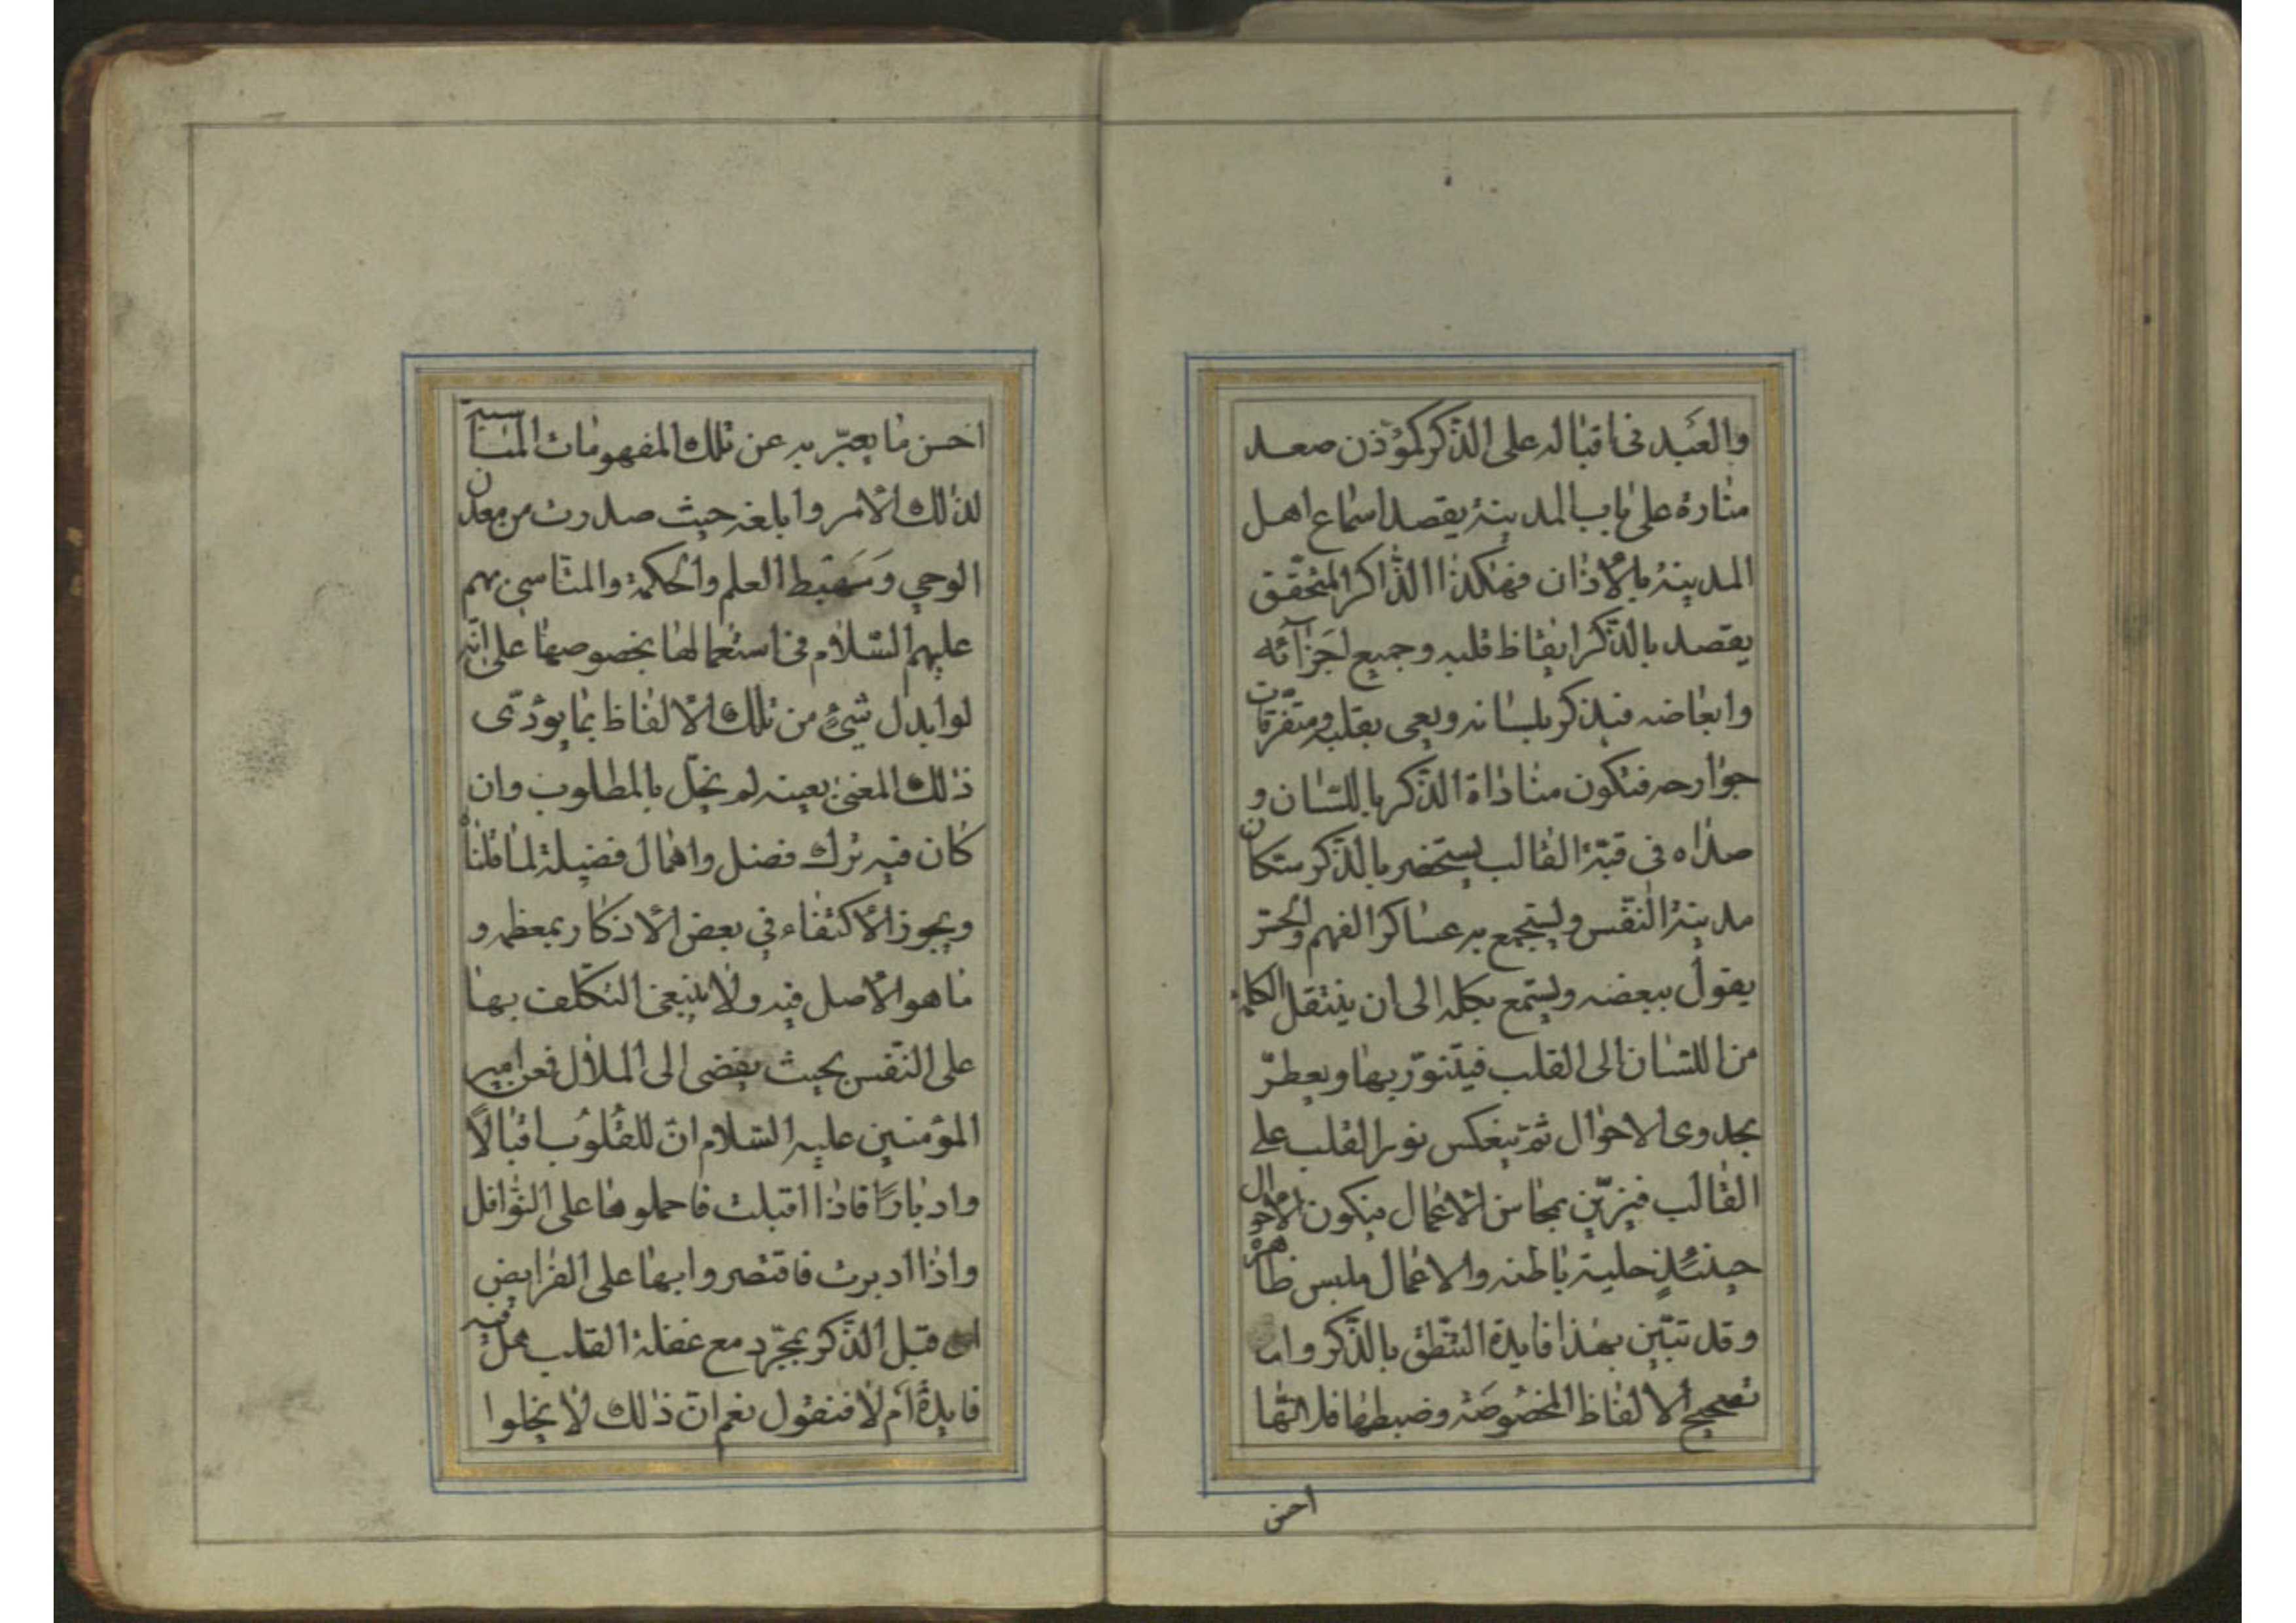 والعَبد في اقباله على الذّكر كمؤذن صعد
منارة على باب المدينة يقصد اسماع اهل
المدينة بالأذان فهكذا الذّاكر المتحقّق
يقصد بالذّكر ايقاظ قلبه وجميع اجزآئه
وابعاضه فيذكر بلسانه ويعى بقلبه ومتفرّقات
جوارحه فتكون مناداة الذّكر باللّسان و
صداه في قبّة القالب يستحضر بالذّكر سكان
مدينة النّفس وليتجمع به عساكر الفهم والحسّ
يقول ببعضه ويستمع بكله الى ان ينتقل الكلمة
من اللّسان الى القلب فيتنوّر بها ويعطرّ
بجدوى الاحوال ثمّ ينعكس نور القلب على
القالب فيزيّن بمحاسن الأعمال فيكون الأحوال
حينئذٍ حلية باطنه والاعمال ملبس ظاهره
وقد تبيّن بهذا فايدة النّطق بالذّكر واما
تصحيح الالفاظ المخصُوصَة وضبطها فلانّها
احسن
احسن ما يعبّر به عن تلك المفهومات المناسبة
لذلك الأمر وابلغه حيث صدرت من معدن
الوحي وَمَهبط العلم والحكمة والمتأسي بهم
عليهم السّلام في استعمالها بخصوصها على انّه
لو ابدل شئ من تلك الألفاظ بما يؤدّى
ذلك المعنى بعينه لم يخلّ بالمطلوب وان
كان فيه ترك فضل واهمال فضيلة لما قلناه
ويجوز الأكتفاء في بعض الأذكار بمعظمه و
ما هو الأصل فيه ولا ينبغى التكلّف بها
على النّفس بحيث يفضى الى الملال فعن امير
المؤمنين عليه السّلام انّ للقُلُوب اقبالاً
وادبارًا فاذا اقبلت فاحملوها على النّوافل
واذا ادبرت فاقتصروا بها على الفرايض
قبل الذّكر بمجّرد مع غفلة القلب هل فيه
فايدة أم لا فنقول نعم انّ ذلك لا يخلوا